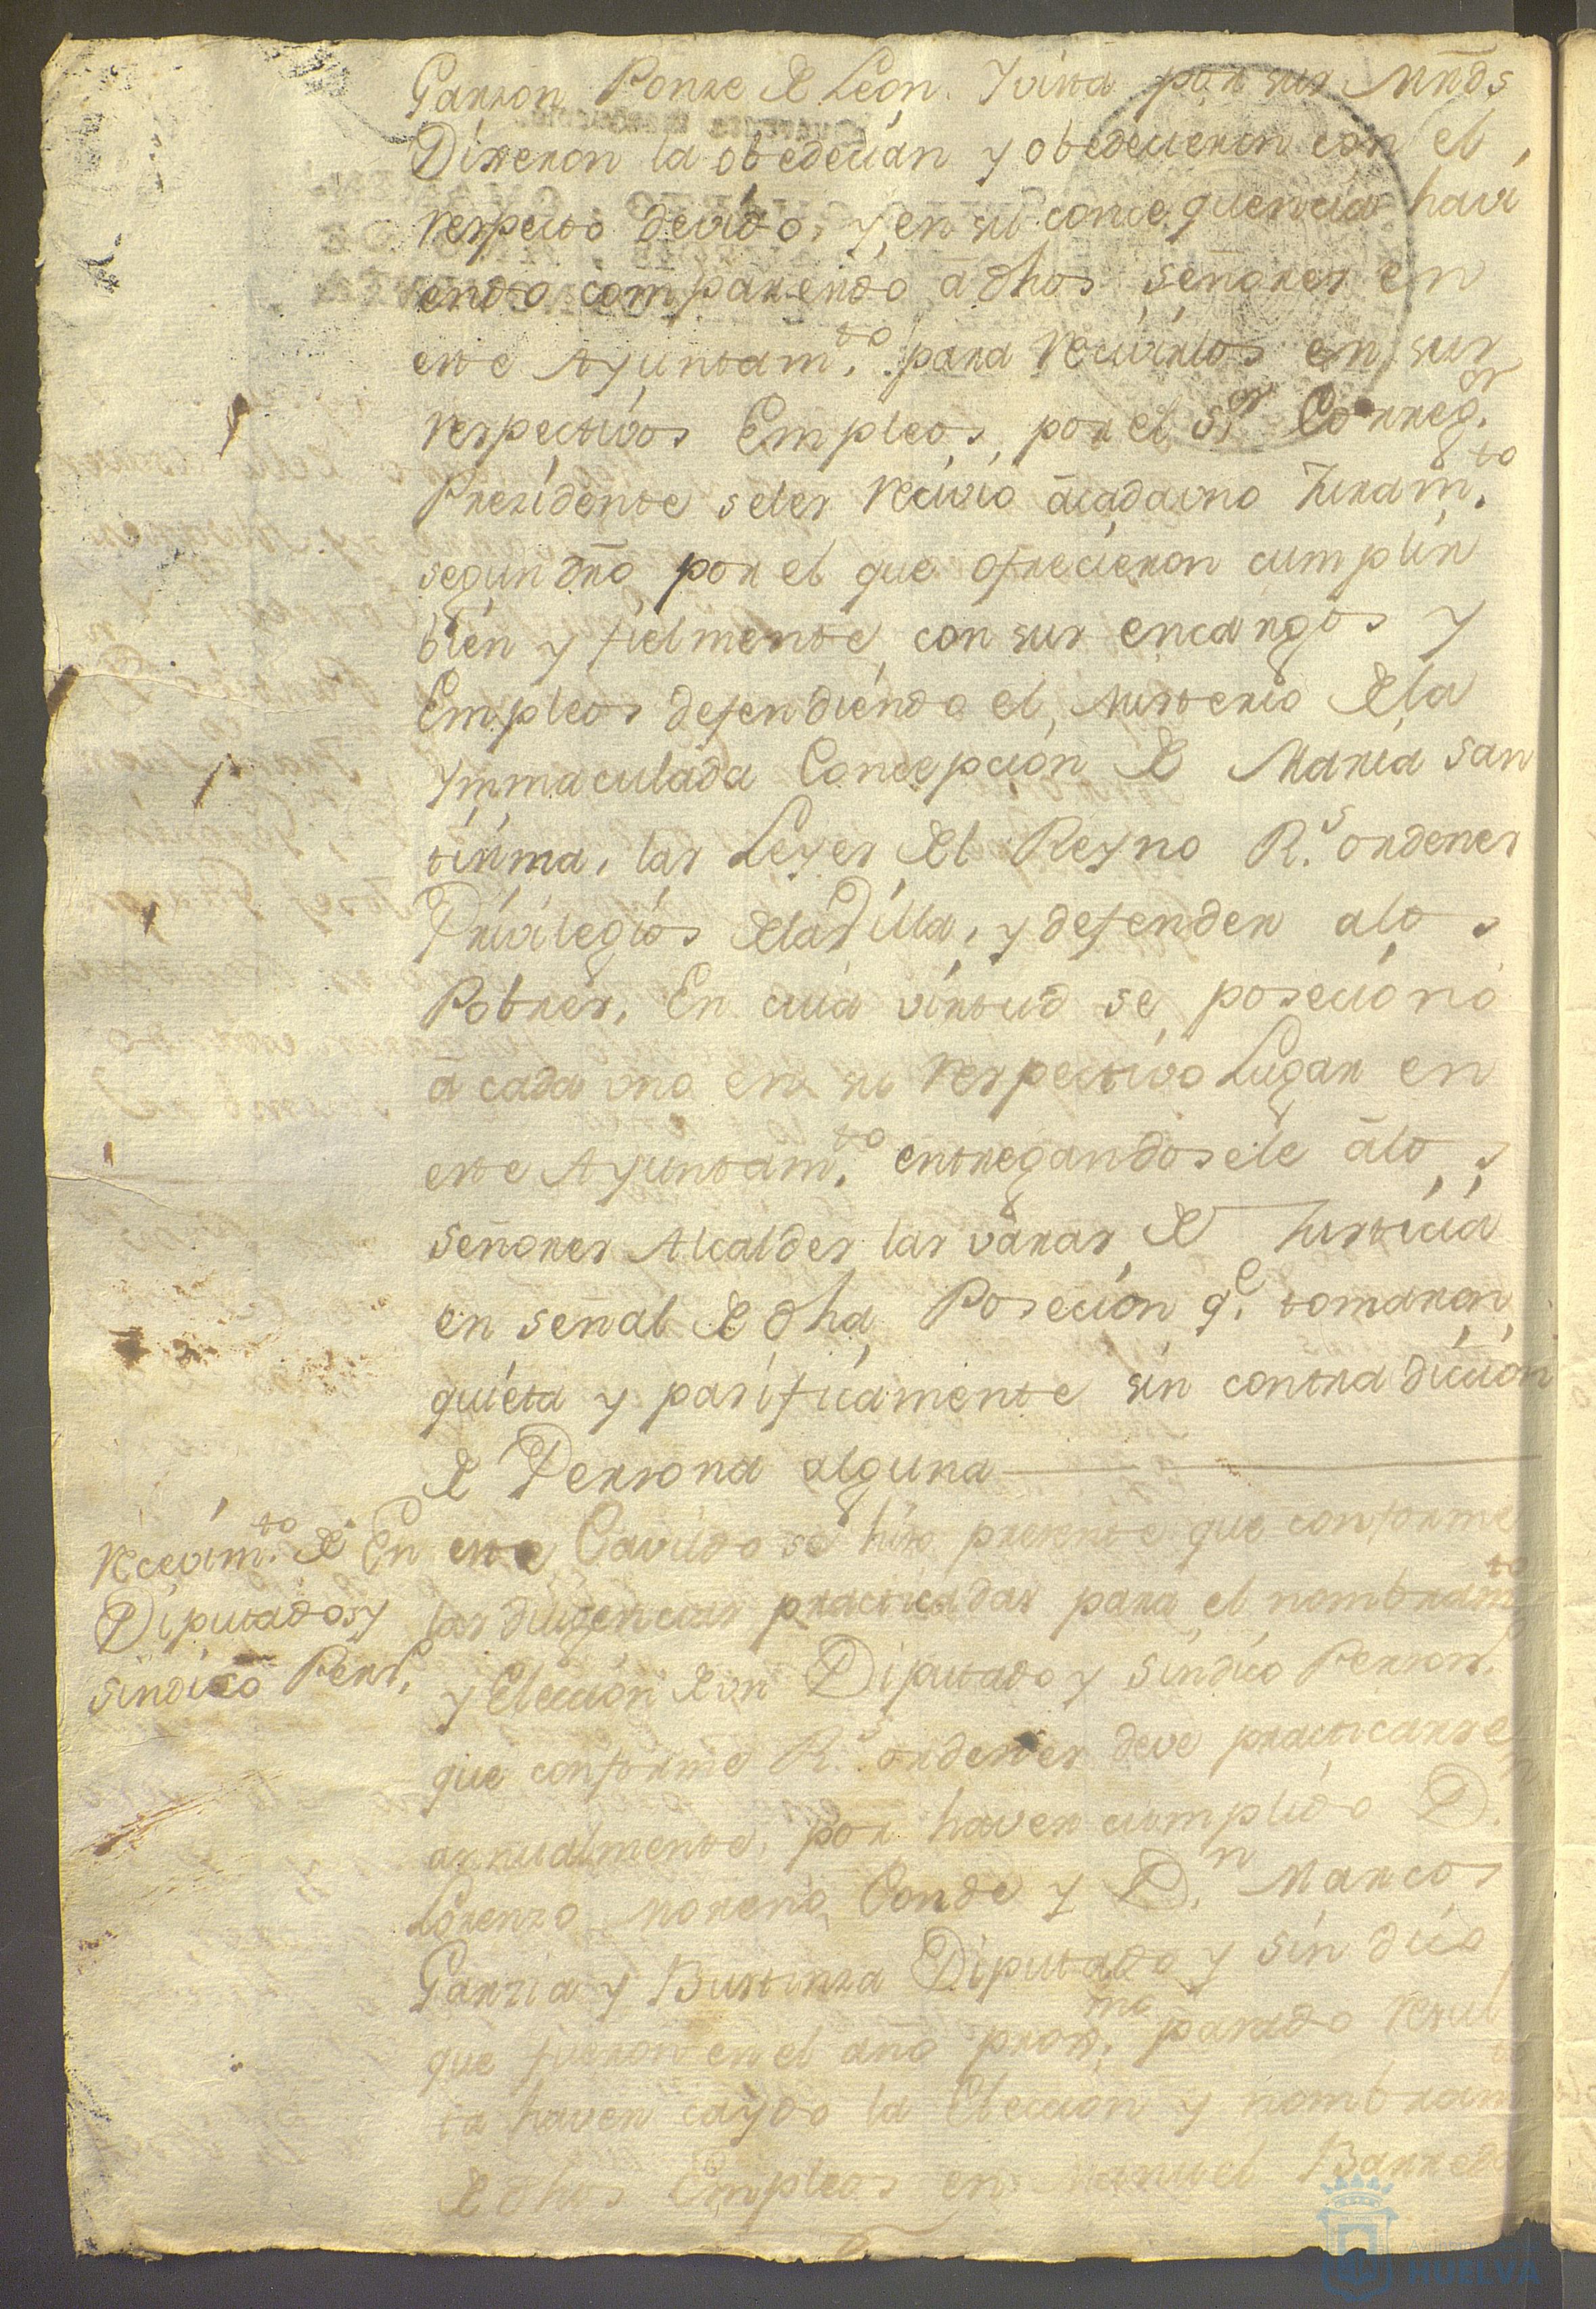 Garzon Ponze de Leon. Yvista por sus Mrds
Dixeron la obedecian y obedecieron con el
respecto devido, y en su conse quencia havi
endo comparendo a dhos señores en
este Ayuntam.to para recivirlos en sus
respectivos Empleos, por el S.or Correg.or
Presidente seles recivió acadauno Juram.to
segun dro por el que ofrecieron cumplir
bien y fielmente con sus encargos y
Empleos defendiendo el Misterio de la
Ymmaculada Concepcion de Maria San
tisima, las Leyes del Reyno R.s ordenes
Privilegios de la Villa, y defender alos
Pobres. En cuia virtud se posecionó
a cada uno en su respectivo Lugar en
este Ayuntam.to entregandosele alos
señores Alcaldes las varas de Justicia
en señal de dha Poseción q.e tomaron
quieta y pasificamente sin contradiccion
de Persona alguna
Recevim.to de
Diputados y
Sindico Pers.l
En este Cavildo se hizo presente que conforme
las diligencias practicadas para el nombram.to
y Eleccion de un Diputado y Sindico Person.l
que conforme R.s ordenes deve practicarse
annualmente, por haver cumplido D.n
Lorenzo Moreno Conde y D.n Marcos
Garzia y Bustinza Diputado y Sindico
que fueron en el año prox.mo pasado resul
ta haver caydo la Eleccion y nombram.to
de dhos Empleos en Manuel Barreda
HUELVA